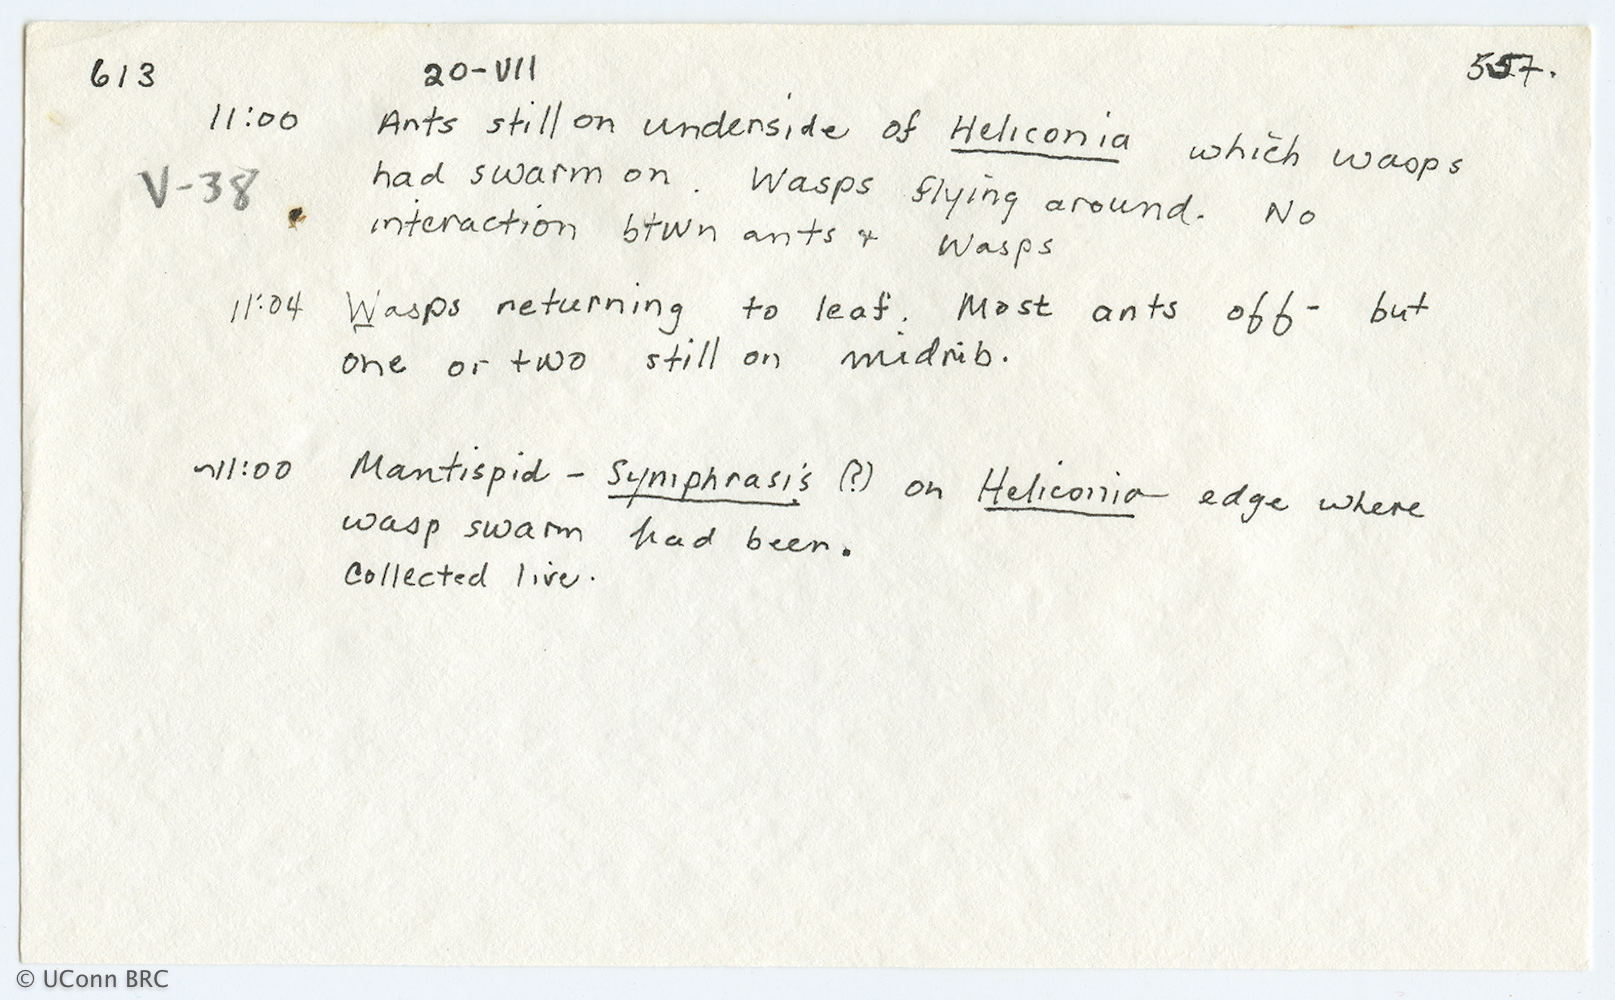 613 20-VII 557.
11:00 Ants still on underside of Heliconia which wasps
V-38 had swarm on. Wasps flying around. No
interaction btwn ants + wasps
11:04 Wasps returning to leaf. Most ants off - but
one or two still on midrib.
~11:00 Mantispid - Symphrasis (?) on Heliconia edge where
wasp swarm had been.
Collected live.
© UConn BRC